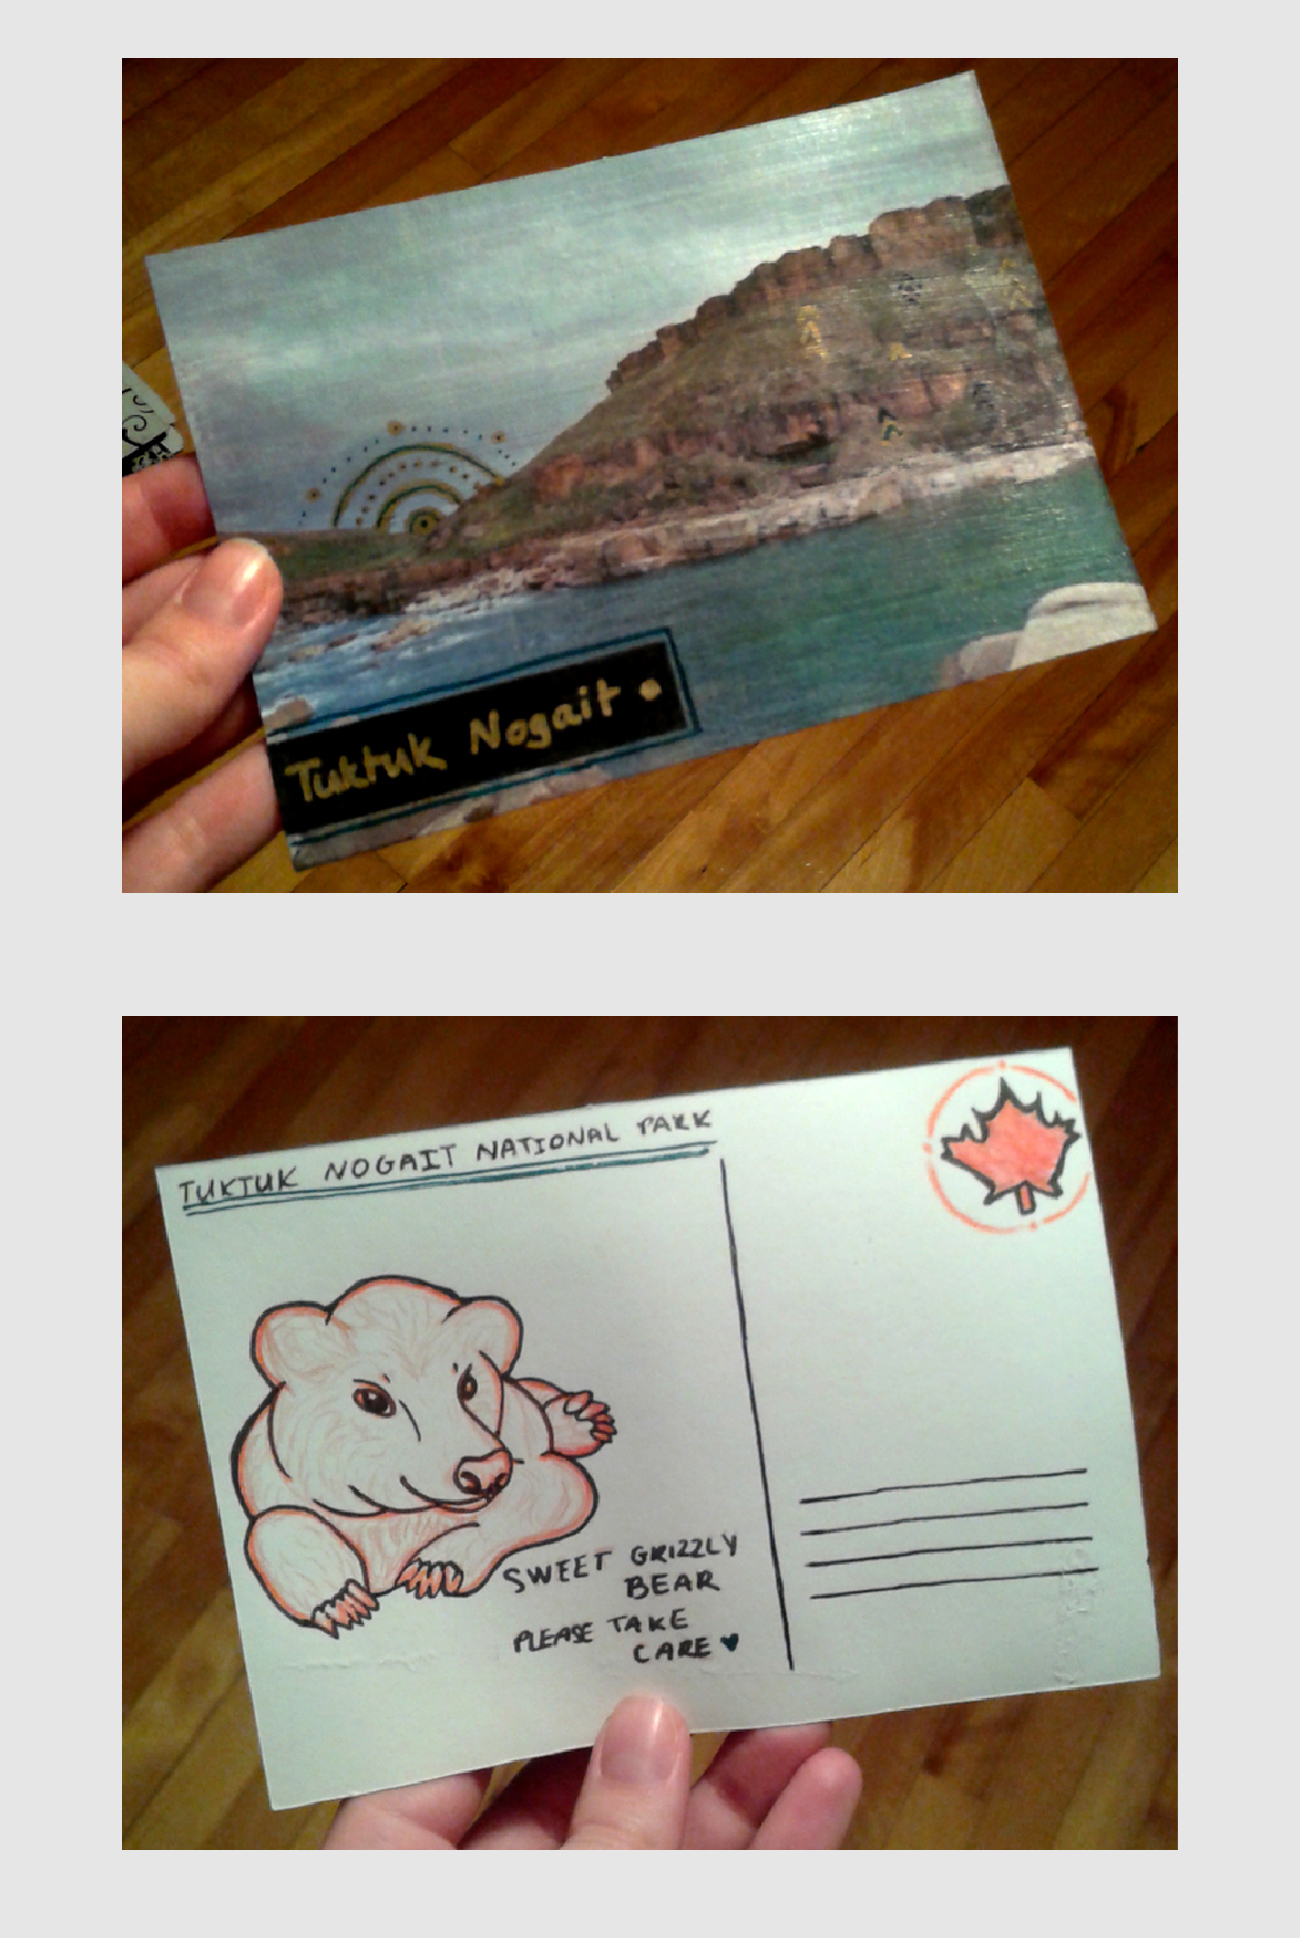 Tuktuk Nogait •
TUKTUK NOGAIT NATIONAL PARK
SWEET GRIZZLY
BEAR
PLEASE TAKE
CARE ♥